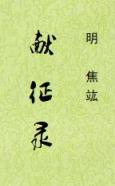 明 焦竑
献征录